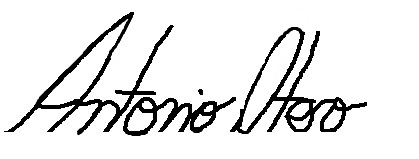 Antonio Otero